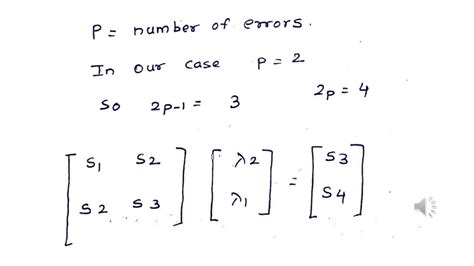 P = number of errors.
In our case P = 2
So 2p-1 = 3 2p = 4
[ S1 S2 ] [ λ2 ] = [ S3 ]
[ S2 S3 ] [ λ1 ] [ S4 ]